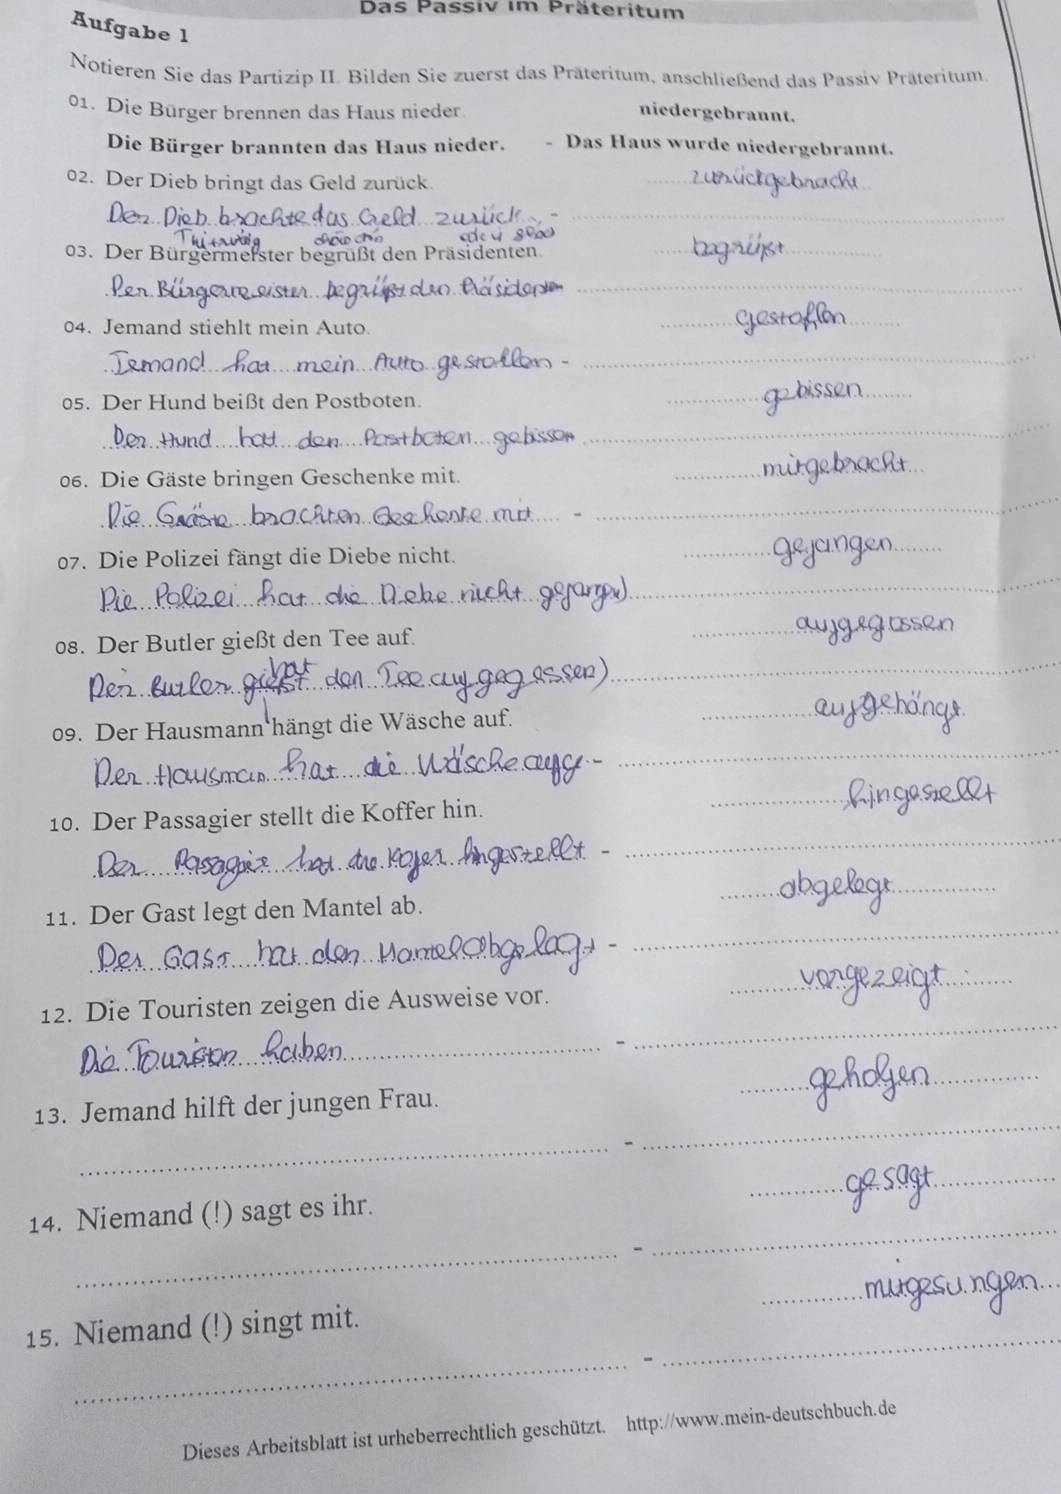 Das Passiv im Präteritum
Aufgabe 1
Notieren Sie das Partizip II. Bilden Sie zuerst das Präteritum, anschließend das Passiv Präteritum.
01. Die Bürger brennen das Haus nieder. niedergebrannt.
Die Bürger brannten das Haus nieder. - Das Haus wurde niedergebrannt.
02. Der Dieb bringt das Geld zurück. zurückgebracht
Der Dieb brachte das Geld zurück -
03. Der Bürgermeister begrüßt den Präsidenten. begrüßt
Der Bürgermeister begrüßt den Präsidenten
04. Jemand stiehlt mein Auto. gestohlen
Jemand hat mein Auto gestollen -
05. Der Hund beißt den Postboten. gebissen
Der Hund hat den Postboten gebissen
06. Die Gäste bringen Geschenke mit. mitgebracht
Die Gäste brachten Geschenke mit -
07. Die Polizei fängt die Diebe nicht. gefangen
Die Polizei hat die Diebe nicht gefangen
08. Der Butler gießt den Tee auf. aufgegossen
Der Butler gießt hat den Tee aufgegossen
09. Der Hausmann hängt die Wäsche auf. aufgehängt
Der Hausman hat die Wäsche aufge -
10. Der Passagier stellt die Koffer hin. hingestellt
Der Passagier hat die Kofer hingestellt -
11. Der Gast legt den Mantel ab. abgelegt
Der Gast hat den Mantel abgelegt -
12. Die Touristen zeigen die Ausweise vor. vorgezeigt
Die Touristen haben -
13. Jemand hilft der jungen Frau. geholfen
-
14. Niemand (!) sagt es ihr. gesagt
-
15. Niemand (!) singt mit. mitgesungen
-
Dieses Arbeitsblatt ist urheberrechtlich geschützt. http://www.mein-deutschbuch.de